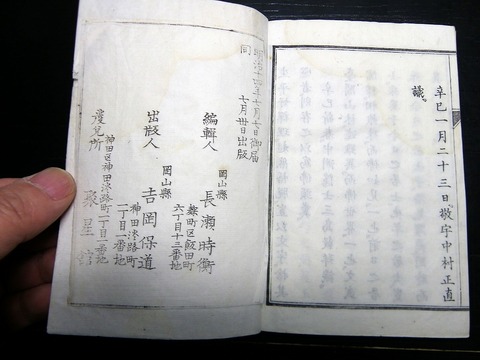 議。
辛巳一月二十三日。敬宇中村正直
明治十四年七月七日御届
同
七月卅日出版
編輯人
岡山縣
長瀬時衡
麹町区飯田町
六丁目十三番地
出版人
岡山縣
吉岡保道
神田淡路町
二丁目一番地
發兌所
神田区神田淡路町二丁目一番地
聚星館